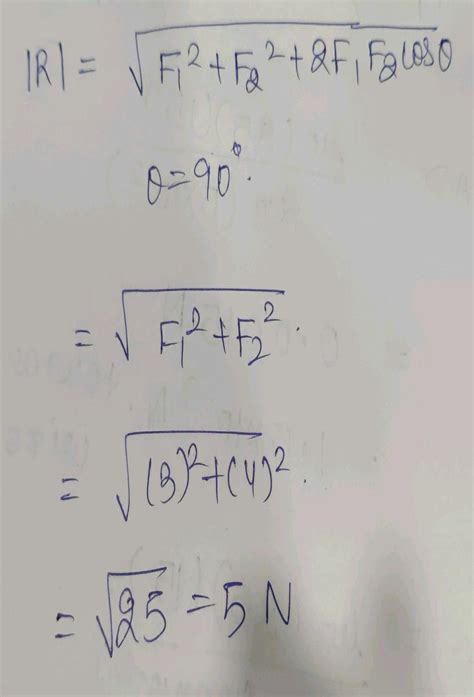 |R| = √(F₁² + F₂² + 2F₁F₂cosθ)
θ = 90°.
= √(F₁² + F₂²).
= √((3)² + (4)²).
= √25 = 5 N